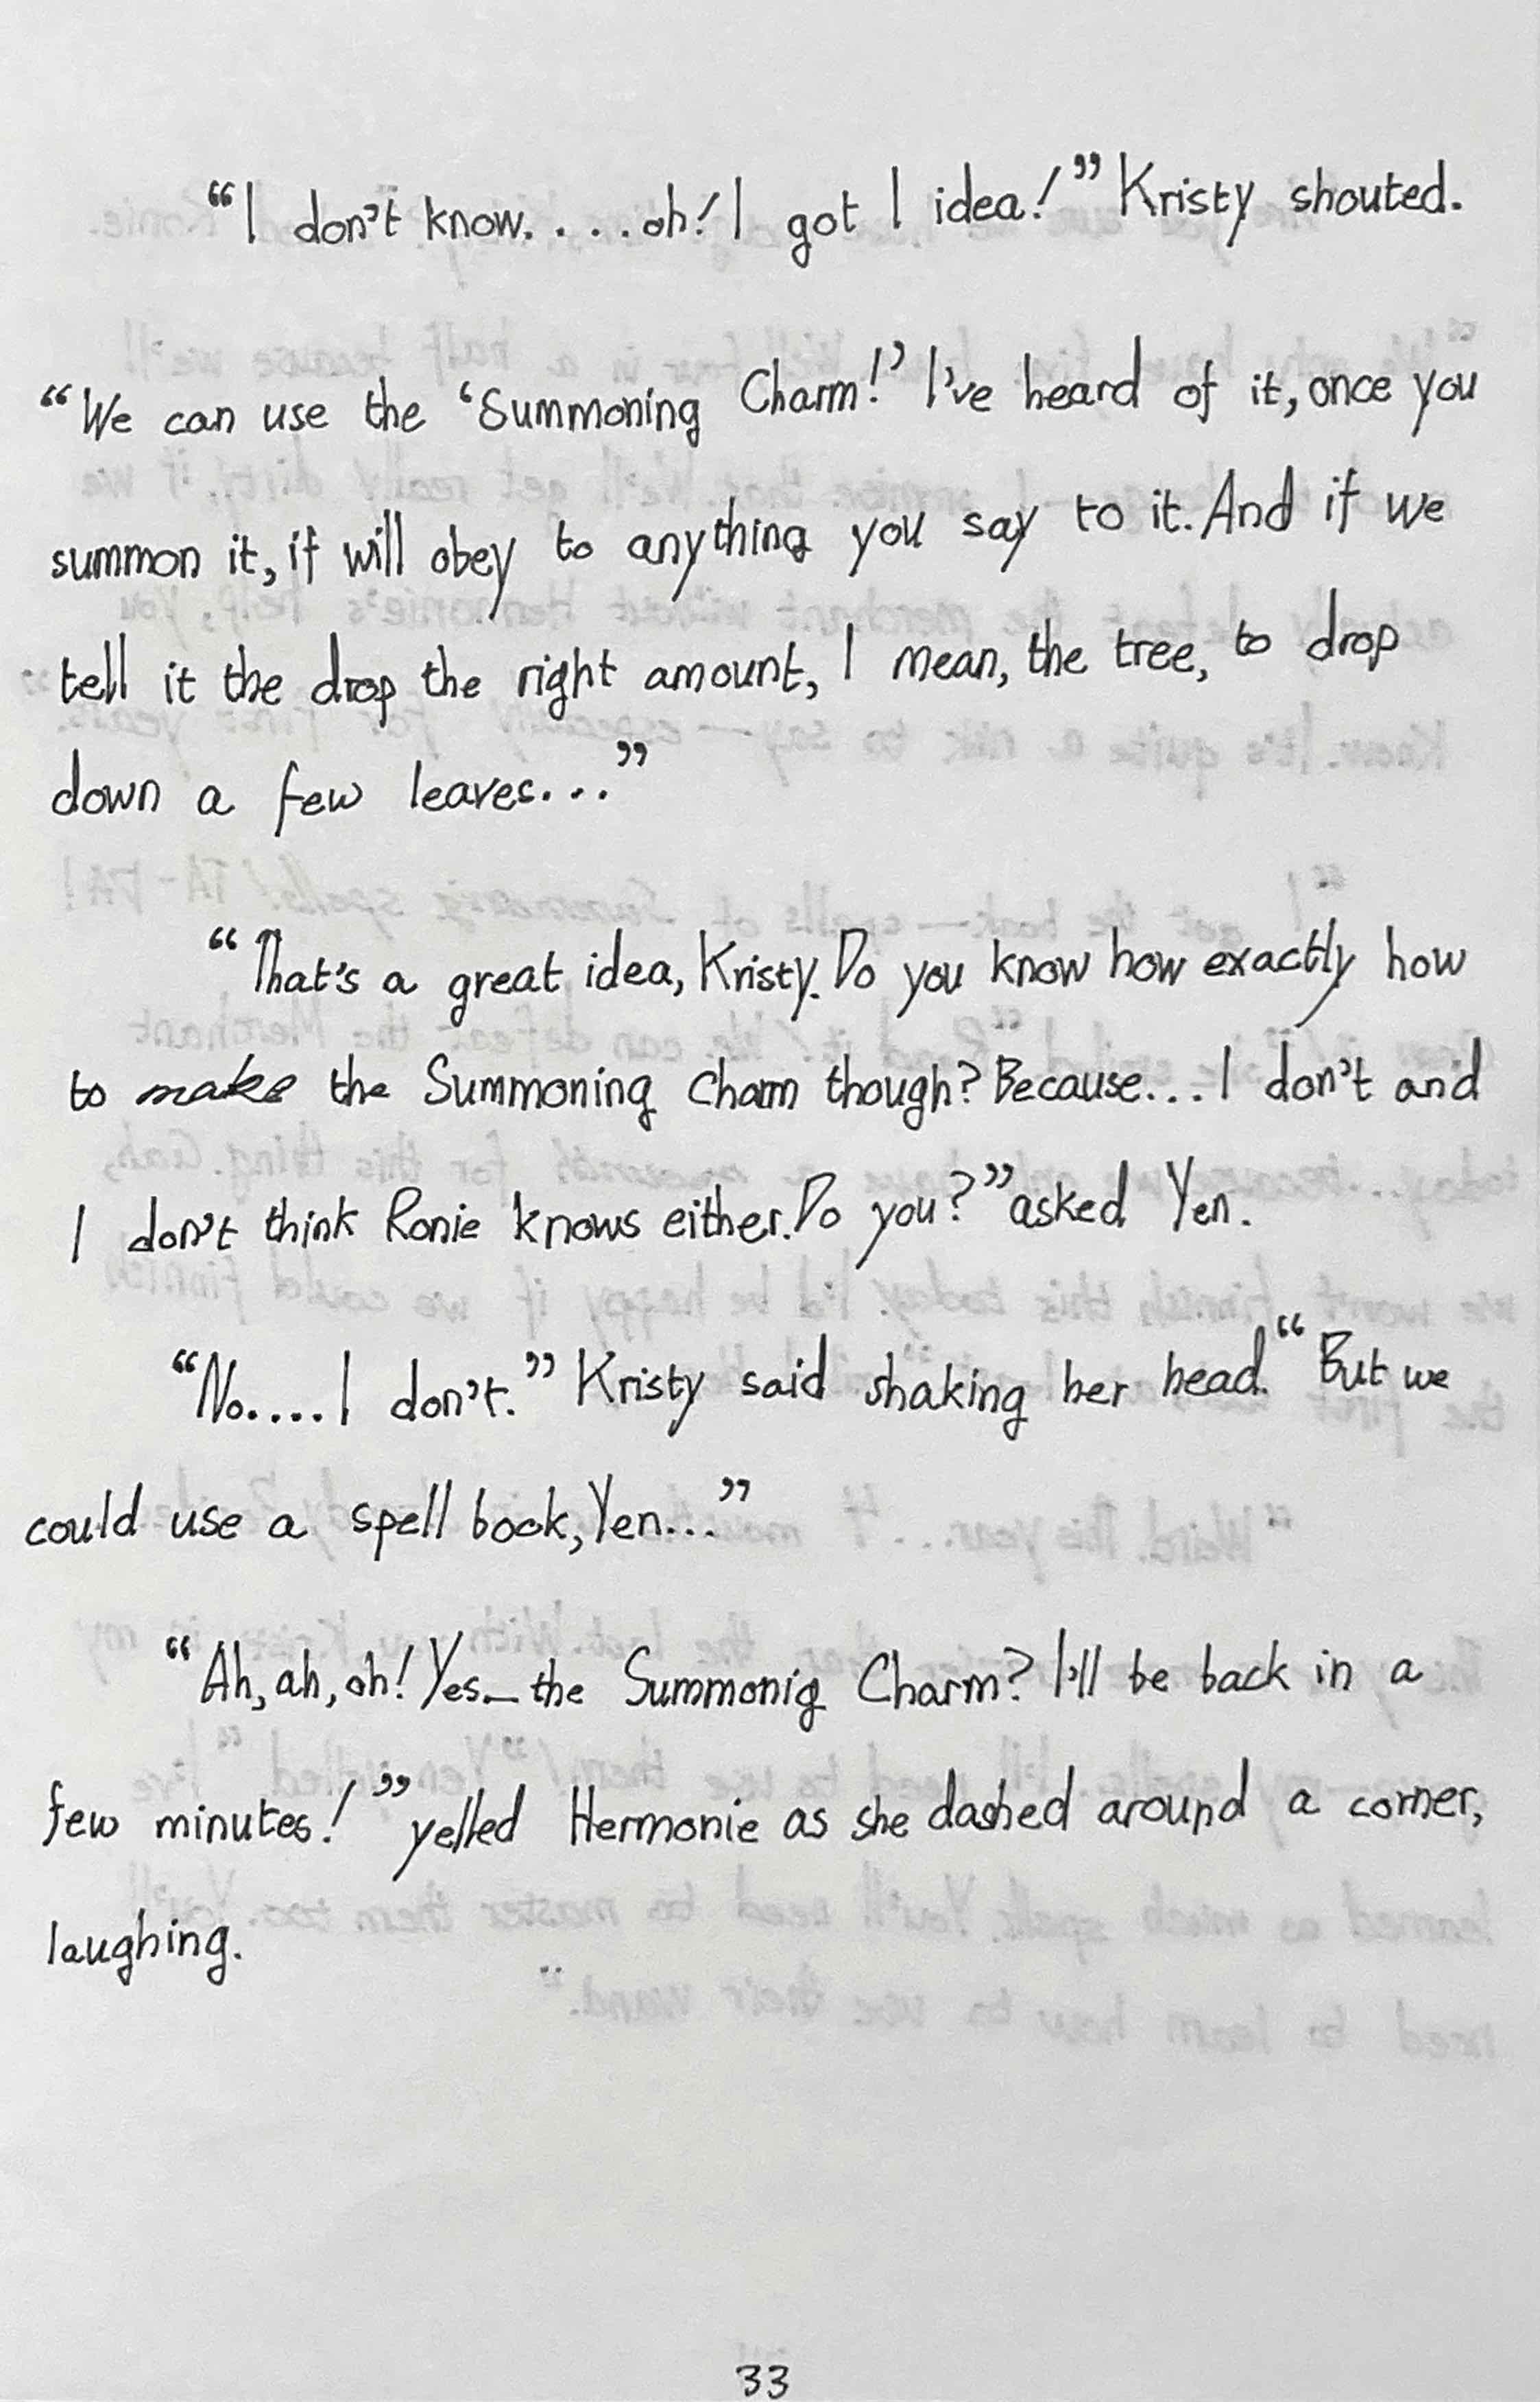 “I don't know. . . . oh! I got I idea!” Kristy shouted.
“We can use the ‘Summoning Charm!’ I've heard of it, once you
summon it, it will obey to anything you say to it. And if we
tell it the drop the right amount, I mean, the tree, to drop
down a few leaves...”
“That's a great idea, Kristy. Do you know how exactly how
to make the Summoning Charm though? Because... I don't and
I don't think Ronie knows either. Do you?” asked Yen.
“No.... I don't.” Kristy said shaking her head. “But we
could use a spell book, Yen...”
“Ah, ah, oh! Yes — the Summonig Charm? I'll be back in a
few minutes!” yelled Hermonie as she dashed around a corner,
laughing.
33